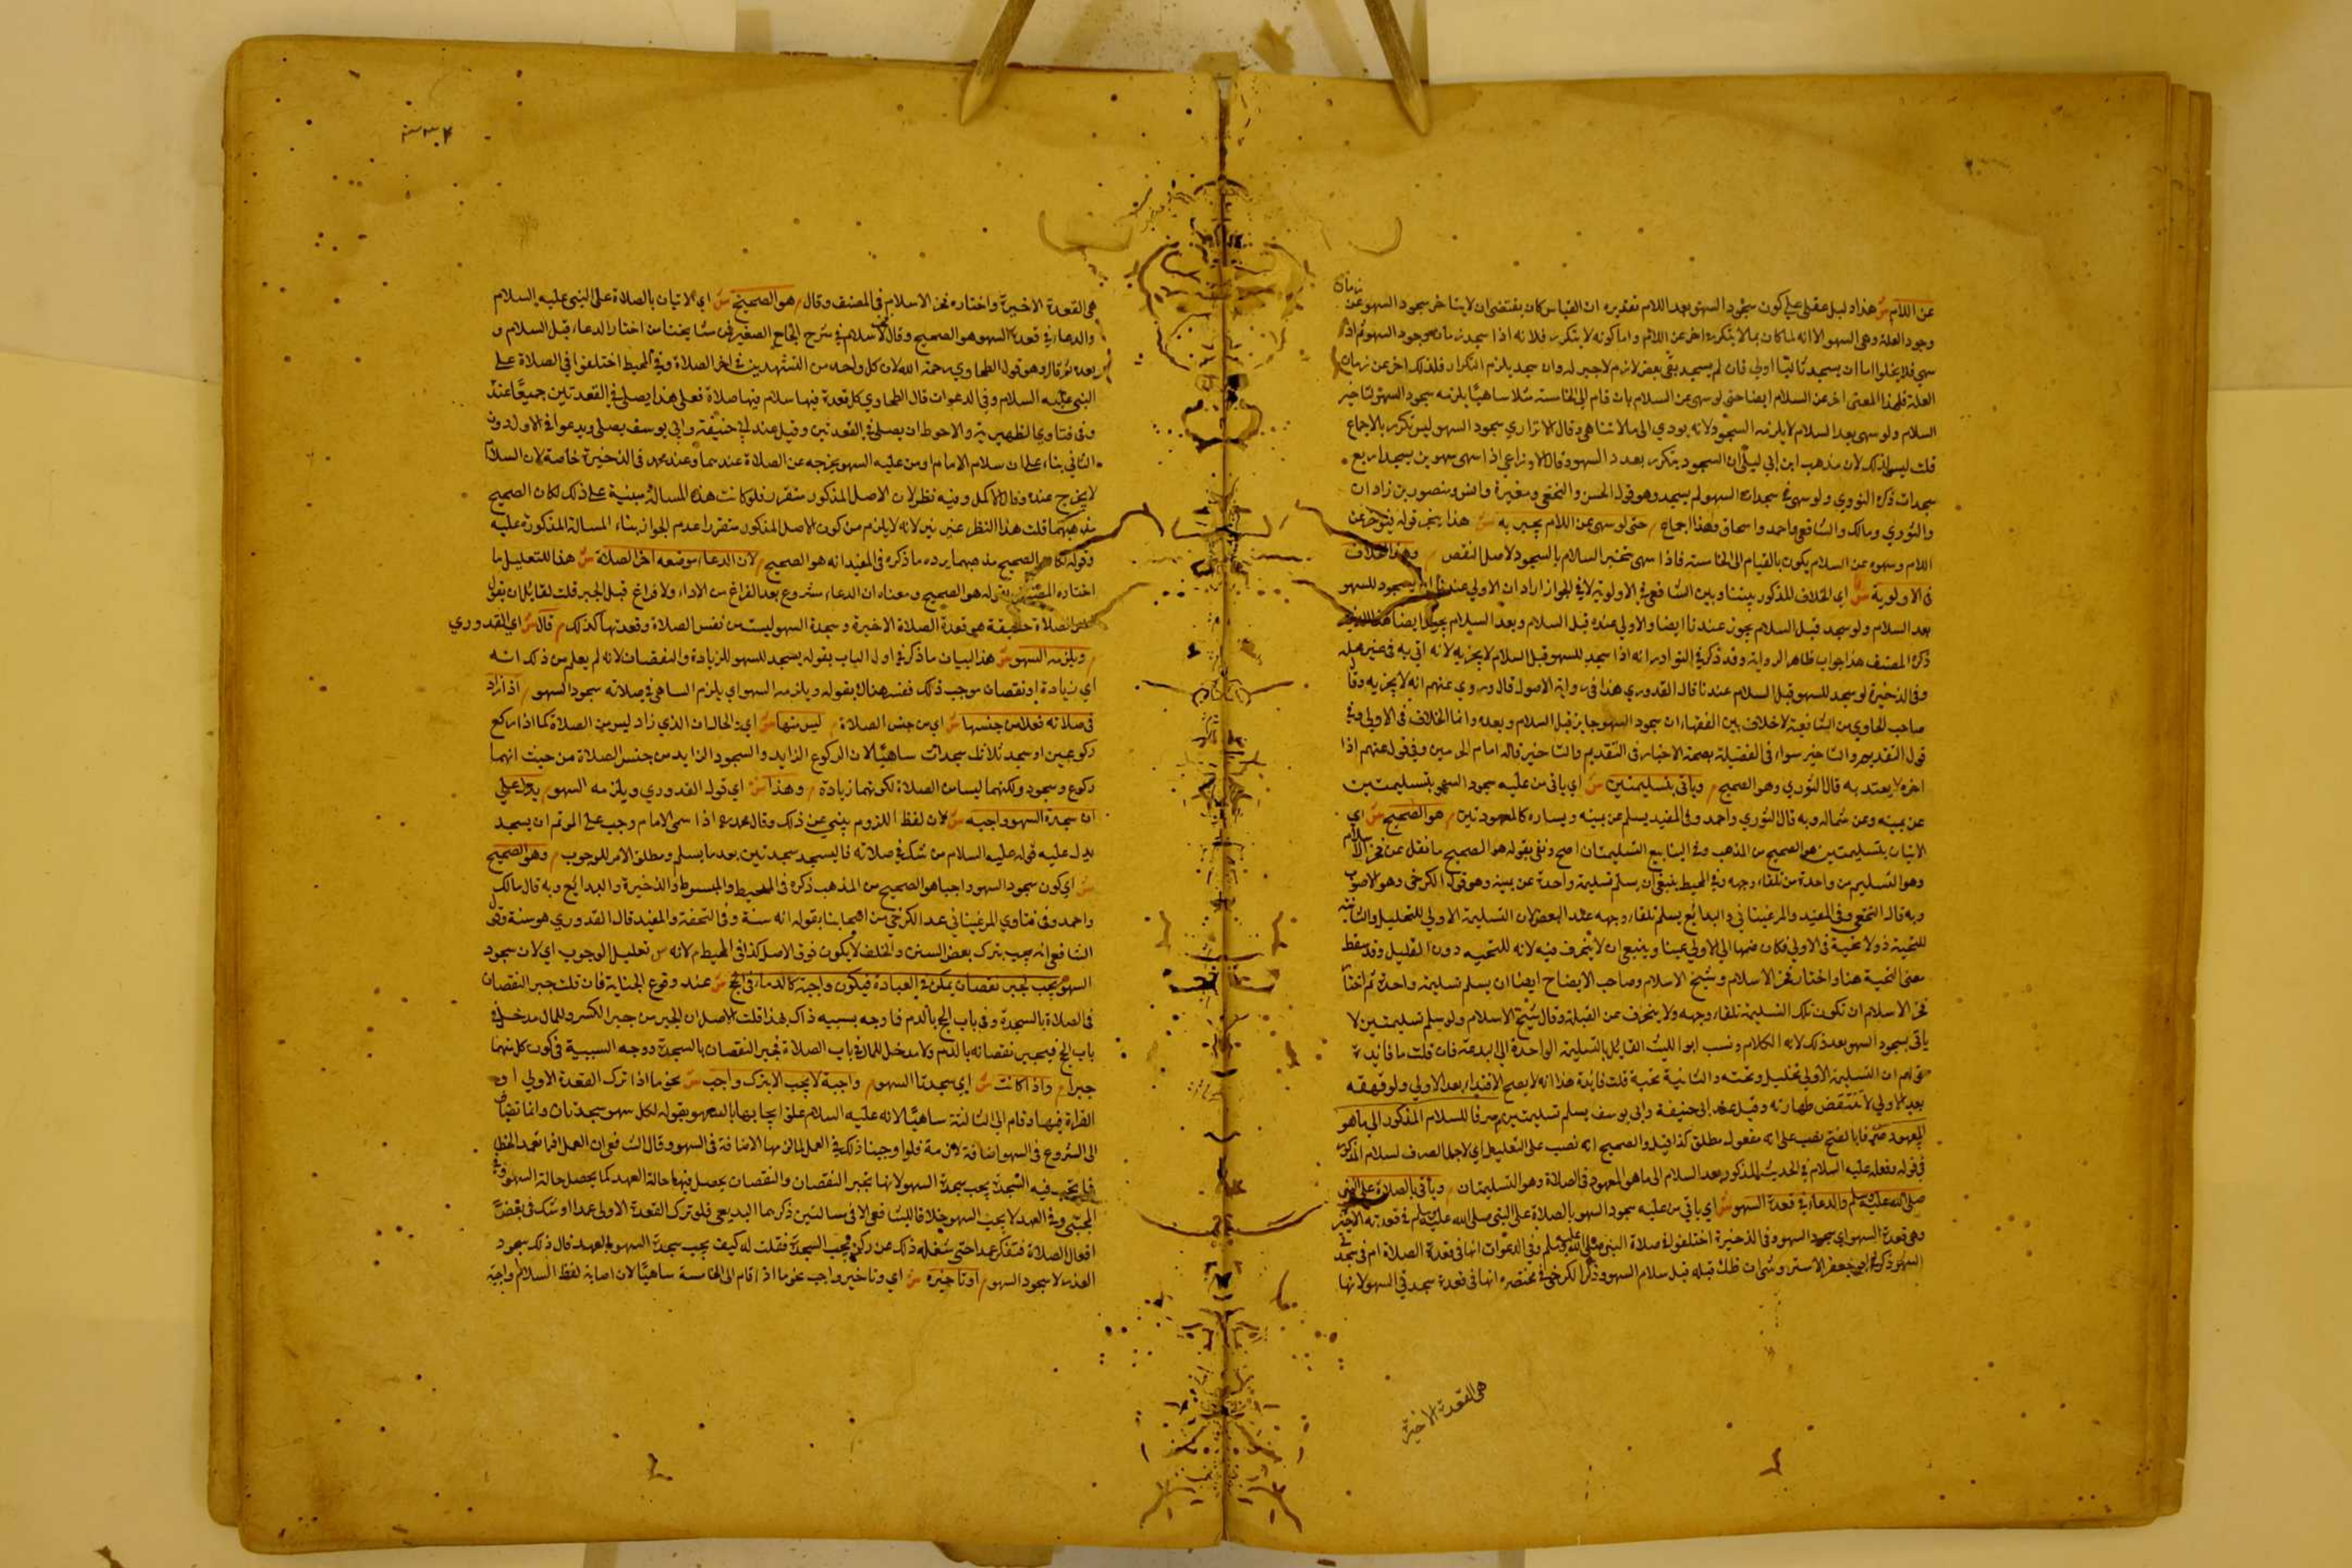 عن اللام ش هذا دليل عقلي على كون سجود السهو بعد اللام تقديره ان القياس كان يقتضي ان لا يتأخر سجود السهو عن زمان
وجود العلة وهي السهو الا انه لما كان مما لا يتكرر اخر عن اللام واما كونه لا يتكرر فلانه اذا سجد زمان وجود السهو ثم اذا
سهي فلا يخلوا اما ان يسجد ثانيا اولي فان لم يسجد بقي بعض لازم لا جبر له وان سجد يلزم التكرار فلذلك اخر عن زمان
العلة فلهذا المعنى اخر عن السلام ايضا حتى لو سهى عن السلام بان قام الى الخامسة مثلا ساهيا يلزمه سجود السهو لتاخير
السلام ولو سهى بعد السلام لا يلزمه السجود لانه يودي الى ما لا يتناهى وقال الاترازي سجود السهو ليس تكرر بالاجماع
قلت ليس كذلك لان مذهب ابن ابي ليلى ان السجود يتكرر بعدد السهو وقال الاوزاعي اذا سهى سهوين يسجد اربع
سجدات ذكره النووي ولو سهى في سجدات السهو لم يسجد وهو قول الحسن والنخعي ومغيرة وانس ومنصور بن زادان
والثوري ومالك والشافعي واحمد واسحاق وهذا اجماع م حتى لو سهى عن اللام يجبر به ش هذا يتجر قوله فيتوخر عن
اللام وسهوه عن السلام يكون بالقيام الى الخامسة فاذا سهى تخير السلام بالسجود لاصل النقص م وهذا الخلاف
في الاولوية ش اي الخلاف المذكور بيننا وبين الشافعي في الاولوية لا في الجواز اراد ان الاولي عندنا ان يسجود للسهو
بعد السلام ولو سجد قبل السلام يجوز عندنا ايضا والاولي عنده قبل السلام وبعد السلام يجوز ايضا هذا الذي
ذكره المصنف هذا جواب ظاهر الرواية وقد ذكر في النوادر انه اذا سجد للسهو قبل السلام لا يجزيه لانه اتى به في غير محله
وفي الذخيرة لو سجد للسهو قبل السلام عندنا قال القدوري هذا في رواية الاصول قال وروي عنهم انه لا يجزيه وقال
صاحب الحاوي من الشافعية لا خلاف بين الفقهاء ان سجود السهو جايز قبل السلام وبعده وانما الخلاف في الاولي وفي
قول التقديم والتاخير سواء في الفضيلة بصحة الاخبار في التقديم والتاخير قاله امام الحرمين وفي قول عنهم اذا
اخره لا يعتد به قال النووي وهو الصحيح م ويأتي بتسليمتين ش اي ياتي من عليه سجود السهو بتسليمتين
عن يمينه وعن شماله وبه قال الثوري واحمد وفي المفيد يسلم عن يمينه ويساره كالمعهودتين م هو الصحيح ش اي
الاتيان بتسليمتين هو الصحيح من المذهب وفي الينابيع التسليمتان اصح ونفى بقوله هو الصحيح ما نقل عن فخر الاسلام
وهو التسليم من واحدة من تلقاء وجهه وفي المحيط ينبغي ان يسلم تسليمة واحدة عن يمينه وهو قول الكرخي وهو الاصوب
وبه قال النخعي وفي المفيد والمرغيناني والبدائع يسلم تلقاء وجهه عند البعض لان التسليمة الاولي للتحليل والثانية
للتحية ولا تحية في الاولي فكان ضمها الى الاولي عبثا وينبغي ان لا ينحرف فيه لانه للتحية دون التحليل وقد سقط
معنى التحية هنا واختار فخر الاسلام وشيخ الاسلام وصاحب الايضاح ايضا ان يسلم تسليمة واحدة ثم اختار
فخر الاسلام ان تكون تلك التسليمة تلقاء وجهه ولا ينحرف عن القبلة وقال شيخ الاسلام ولو سلم تسليمتين لا
ياتي بسجود السهو بعد ذلك لانه الكلام ونسب ابو الليث القايل بالتسليمة الواحدة الى البدعة فان قلت ما فائدة
ان التسليمة الاولي تحليل وتحية والثانية تحية قلت فائدة هذا انه لا يصح الاقتداء بعد الاولي ولو قهقه
بعد الاولي لا تنتقض طهارته وقيل عند ابي حنيفة وابي يوسف يسلم تسليمتين م صرفا للسلام المذكور الى ما هو
المعهود ش صرفا بالفتح نصب على انه مفعول مطلق كذا قيل والصحيح انه نصب على التعليل اي لاجل الصرف لسلام المذكور
في قوله وفعله عليه السلام في الحديث المذكور بعد السلام الى ما هو المعهود في الصلاة وهو التسليمتان م ويأتي بالصلاة على النبي
صلى الله عليه وسلم والدعاء في قعدة السهو ش اي ياتي من عليه سجود السهو بالصلاة على النبي صلى الله عليه وسلم في قعدته الاخيرة
وهي قعدة السهو اي سجود السهو وفي الذخيرة اختلفوا في صلاة النبي صلى الله عليه وسلم وفي الدعوات انها في قعدة الصلاة ام في سجدة
السهو ذكر ابي جعفر الاستروشني ان ظك قبله قبل سلام السهو وذكر الكرخي في مختصره انها في قعدة سجد في السهو لانها
هي القعدة الاخيرة
هي القعدة الاخيرة واختاره فخر الاسلام في المصنف وقال م هو الصحيح ش اي الاتيان بالصلاة على النبي عليه السلام
والدعاء في قعدة السهو هو الصحيح وقال فخر الاسلام في شرح الجامع الصغير في مشايخنا من اختار الدعاء قبل السلام و
بعده ثم قال وهو قول الطحاوي رحمة الله لان كل واحد من التشهدين اخر الصلاة وفي المحيط اختلفوا في الصلاة على
النبي عليه السلام وفي الدعوات قال الطحاوي كل قعدة فيها سلام فيها صلاة فعلى هذا يصلي في القعدتين جميعا عنده
وفي فتاوي الظهيرية والاحوط ان يصلي في القعدتين وقيل عند ابي حنيفة وابي يوسف يصلي ويدعوا في الاولي دون
الثاني بناء على ان سلام الامام ومن عليه السهو يخرجه عن الصلاة عندهما وعند محمد في الذخيرة خاصة لان السلام
لا يخرج عنده وقال الاكمل وفيه نظر لان الاصل المذكور متقرر فلو كانت هذه المسالة مبنية على ذلك لكان الصحيح
مذهبهما قلت هذا النظر غير بين لانه لا يلزم من كون الاصل المذكور متقررا عدم الجواز بناء المسالة المذكورة عليه
وقوله لكان الصحيح مذهبهما يرده ما ذكره في المفيد انه هو الصحيح م لان الدعاء موضعه اخر الصلاة ش هذا للتعليل ما
اختاره المصنف بقوله هو الصحيح ومعناه ان الدعاء مشروع بعد الفراغ من الاداء ولا فراغ قبل الجبر قلت لقائل ان يقول
الصلاة حقيقة هي قعدة الصلاة الاخيرة وسجدة السهو ليست من نفس الصلاة وقعدتها كذلك م قال ش اي القدوري
م ويلزمه السهو ش هذا البيان ما ذكر في اول الباب بقوله يسجد للسهو للزيادة والنقصان لانه لم يعلم من ذلك انه
اي زيادة او نقصان موجب ذلك ففسر هناك بقوله ويلزمه السهو اي يلزم الساهي في صلاته سجود السهو م اذا زاد
في صلاته فعلا من جنسها ش اي من جنس الصلاة م ليس منها ش اي والحال ان الذي زاد ليس من الصلاة كما اذا ركع
ركوعين او سجد ثلاث سجدات ساهيا لان الركوع الزايد والسجود الزايد من جنس الصلاة من حيث انهما
ركوع وسجود ولكنهما ليسا من الصلاة لكونهما زيادة م وهذا ش اي قول القدوري ويلزمه السهو م يدل على
ان سجدة السهو واجبة ش لان لفظ اللزوم ينبي عن ذلك وقال محمد اذا سهى الامام وجب على الموتم ان يسجد
يدل عليه قوله عليه السلام من شك في صلاته فاليسجد سجدتين بعد ما يسلم ومطلق الامر للوجوب م وهو الصحيح
ش اي كون سجود السهو واجبا هو الصحيح من المذهب ذكره في المحيط والمبسوط والذخيرة والبدائع وبه قال مالك
واحمد وفي فتاوي المرغيناني عند الكرخي من اصحابنا بقوله انه سنة وفي التحفة والمفيد قال القدوري هو سنة وقال
الشافعي انه يجب بترك بعض السنن والخلف لا يكون فوق الاصل كذا في المحيط م لانه ش تعليل الوجوب اي لان سجود
السهو م يجب لجبر نقصان يمكن في العبادة فيكون واجبة كالدماء في الحج ش عند وقوع الجناية فان قلت جبر النقصان
في الصلاة بالسجدة وفي باب الحج بالدم فما وجه بسببه ذاك بهذا قلت الاصل ان الجبر من جبر الكسر وللمال مدخل في
باب الحج فيجبر نقصانه بالدم ولا مدخل للمال في باب الصلاة فجبر النقصان بالسجدة ووجه السببية في كون كل منهما
جبرا م واذا كانت ش اي سجدتا السهو م واجبة لا يجب الا بترك واجب ش نحو ما اذا ترك القعدة الاولي او
القراة فيها وقام الى الثالثة ساهيا لانه عليه السلام علق ايجابها بالسهو بقوله لكل سهو سجدتان وانما تضاف
الى الشروع في السهو اضافة لازمة فلو اوجبنا ذلك في العمل لما لزمها الاضافة في السهو وقال الشافعي ان العمل اذا تعمد الخطا
فيما يجب فيه السجدة يجب سجدة السهو لانها تجبر النقصان والنقصان يحصل فيها حالة العمد كما يحصل حالة السهو وفي
المجتبى وفي العمد لا يجب السهو خلافا للشافعي الا في مسالتين ذكرهما البديعي فلو ترك القعدة الاولى عمدا او شك في بعض
افعال الصلاة فتفكر عمدا حتى شغله ذلك عن ركن يجب السجدة فقلت له كيف يجب سجدة السهو بالعمد قال ذلك سجود
العذر لا سجود السهو م او تاخيره ش اي وتاخير واجب نحو ما اذا قام الى الخامسة ساهيا لان اصابة لفظ السلام واجبة